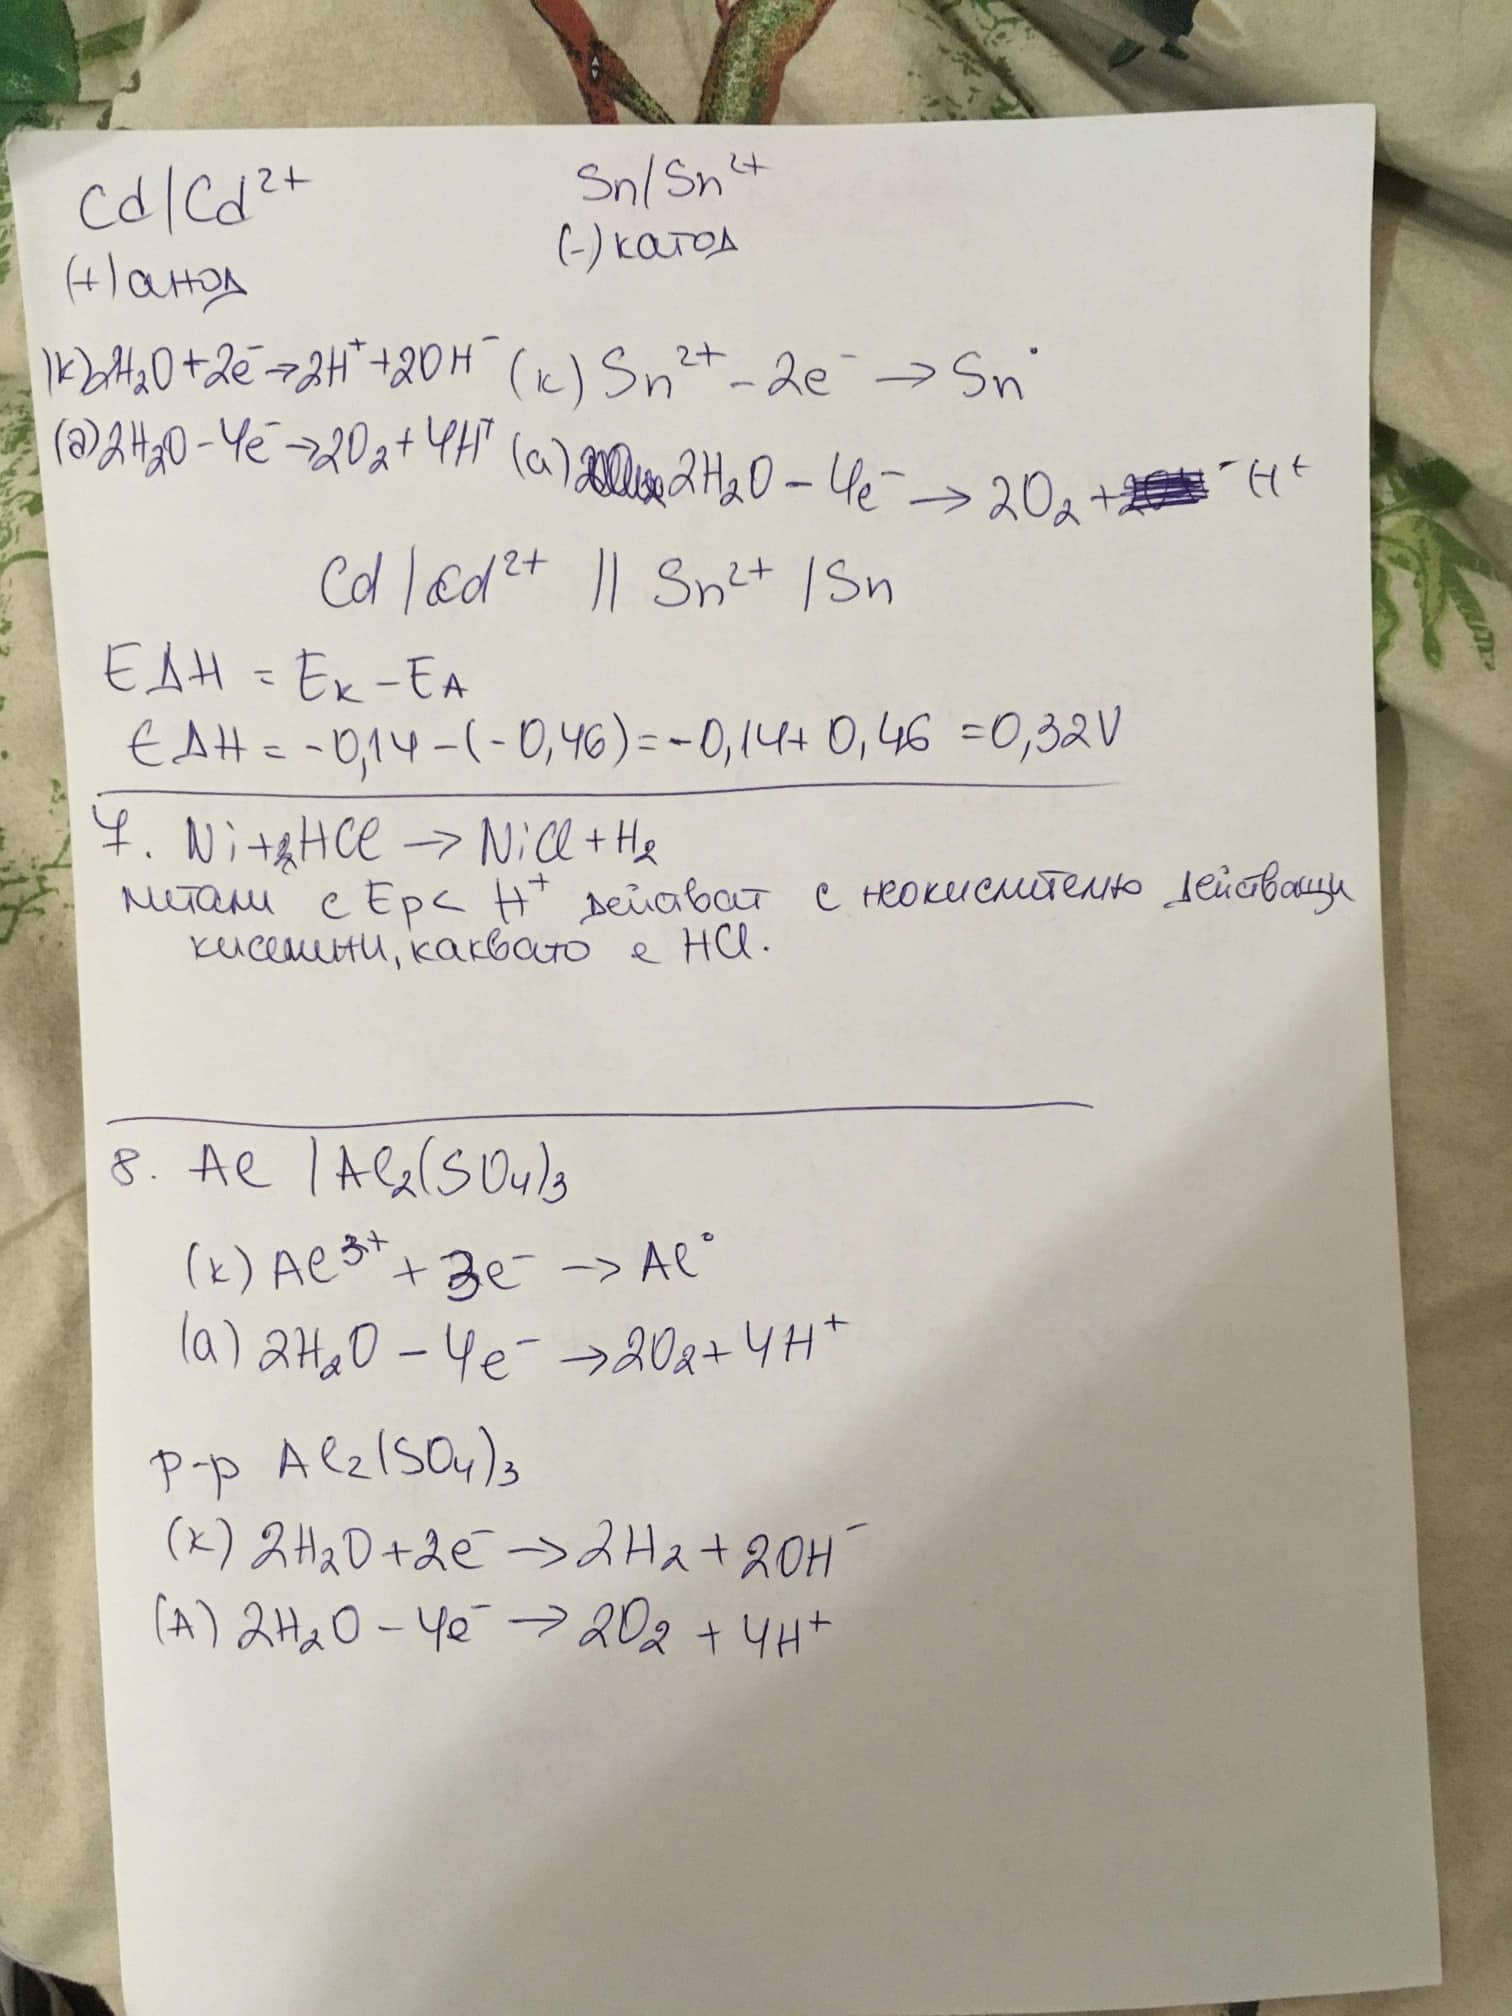 Cd/Cd²⁺ Sn/Sn²⁺
(+) анод (-) катод
(к) 2H₂O + 2e⁻ → 2H⁺ + 2OH⁻ (к) Sn²⁺ - 2e⁻ → Sn°
(а) 2H₂O - 4e⁻ → 2O₂ + 4H⁺ (а) 2H₂O - 4e⁻ → 2O₂ + H⁺
Cd/Cd²⁺ // Sn²⁺/Sn
ЕДН = Eк - EА
ЕДН = -0,14 - (-0,46) = -0,14 + 0,46 = 0,32V
7. Ni + 2HCl → NiCl + H₂
Метали с Ep < H⁺ действат с неокислително действащи
киселини, каквато е HCl.
8. Al | Al₂(SO₄)₃
(к) Al³⁺ + 3e⁻ → Al°
(а) 2H₂O - 4e⁻ → 2O₂ + 4H⁺
р-р Al₂(SO₄)₃
(к) 2H₂O + 2e⁻ → 2H₂ + 2OH⁻
(А) 2H₂O - 4e⁻ → 2O₂ + 4H⁺